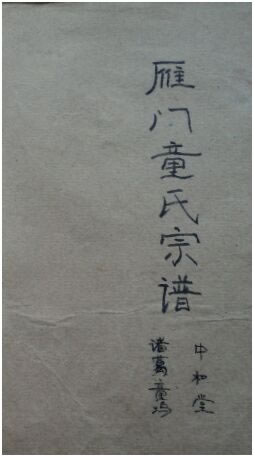 雁门童氏宗谱
中和堂
诸葛童坞